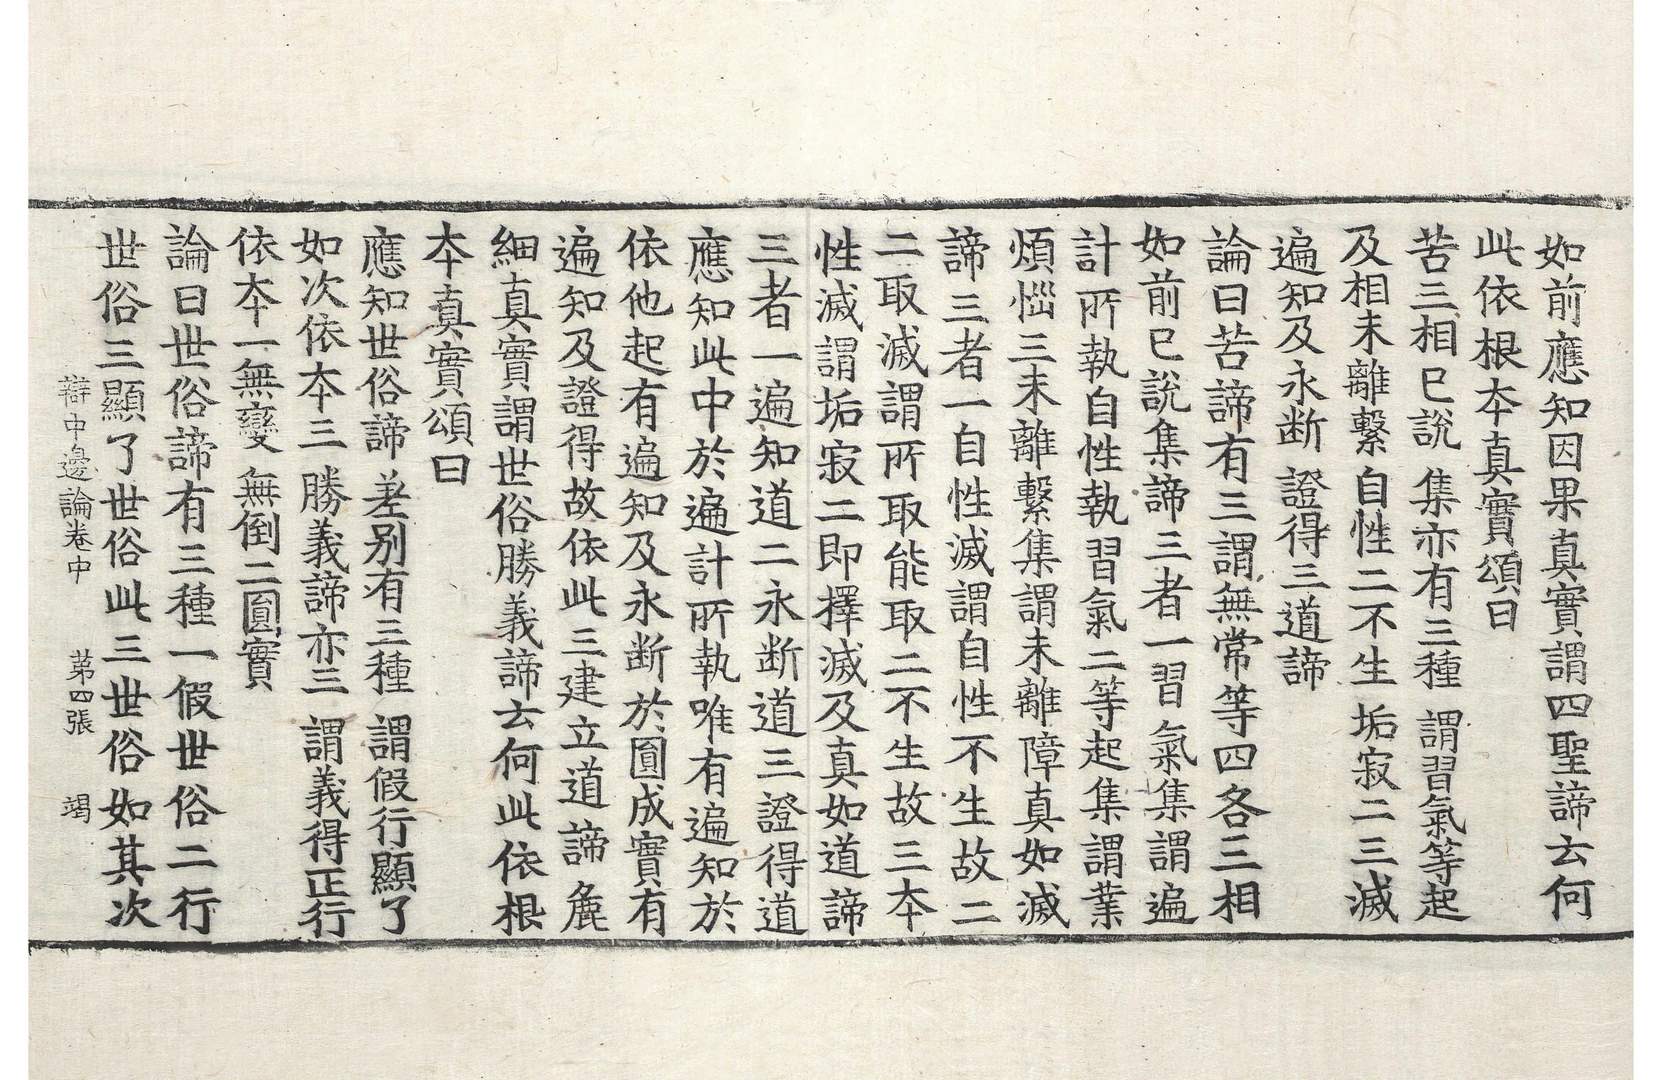 如前應知因果真實謂四聖諦云何
此依根本真實頌曰
苦三相已說 集亦有三種 謂習氣等起
及相未離繫 自性二不生 垢寂二三滅
遍知及永断 證得三道諦
論曰苦諦有三謂無常等四各三相
如前已說集諦三者一習氣集謂遍
計所執自性執習氣二等起集謂業
煩惱三未離繫集謂未離障真如滅
諦三者一自性滅謂自性不生故二
二取滅謂所取能取二不生故三本
性滅謂垢寂二即擇滅及真如道諦
三者一遍知道二永断道三證得道
應知此中於遍計所執唯有遍知於
依他起有遍知及永断於圓成實有
遍知及證得故依此三建立道諦麁
細真實謂世俗勝義諦云何此依根
本真實頌曰
應知世俗諦 差别有三種 謂假行顯了
如次依本三 勝義諦亦三 謂義得正行
依本一無變 無倒二圓實
論曰世俗諦有三種一假世俗二行
世俗三顯了世俗此三世俗如其次
辯中邊論卷中 苐四張 竭